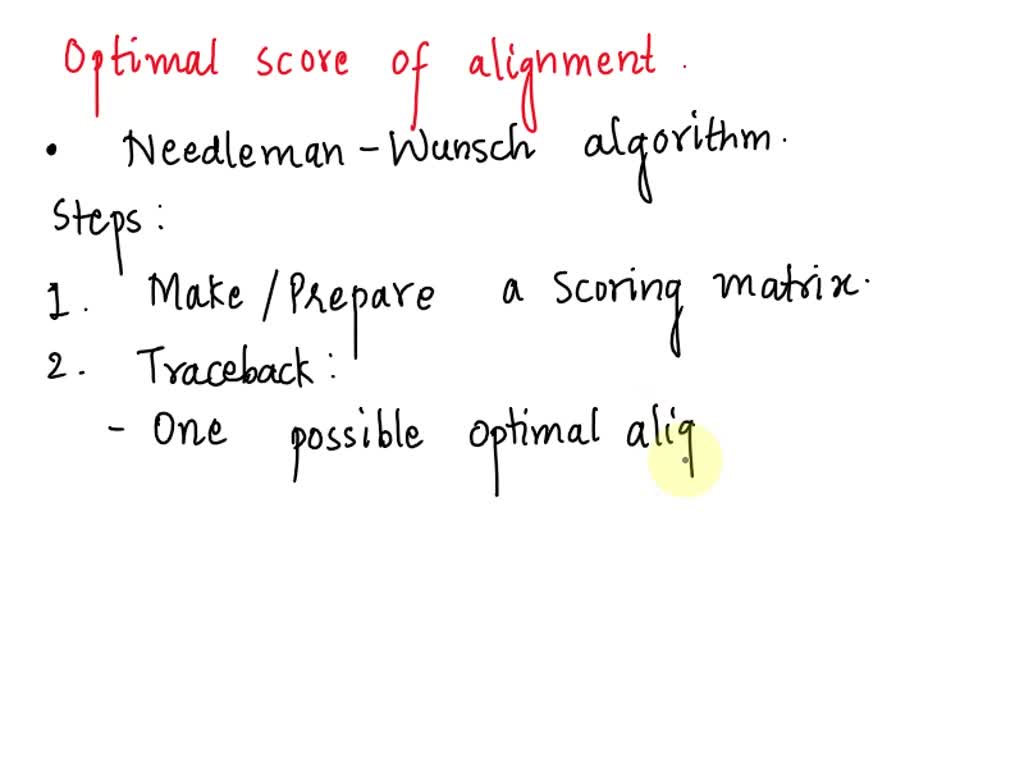 Optimal score of alignment.
• Needleman-Wunsch algorithm.
Steps:
1. Make/Prepare a scoring matrix.
2. Traceback:
- One possible optimal alig